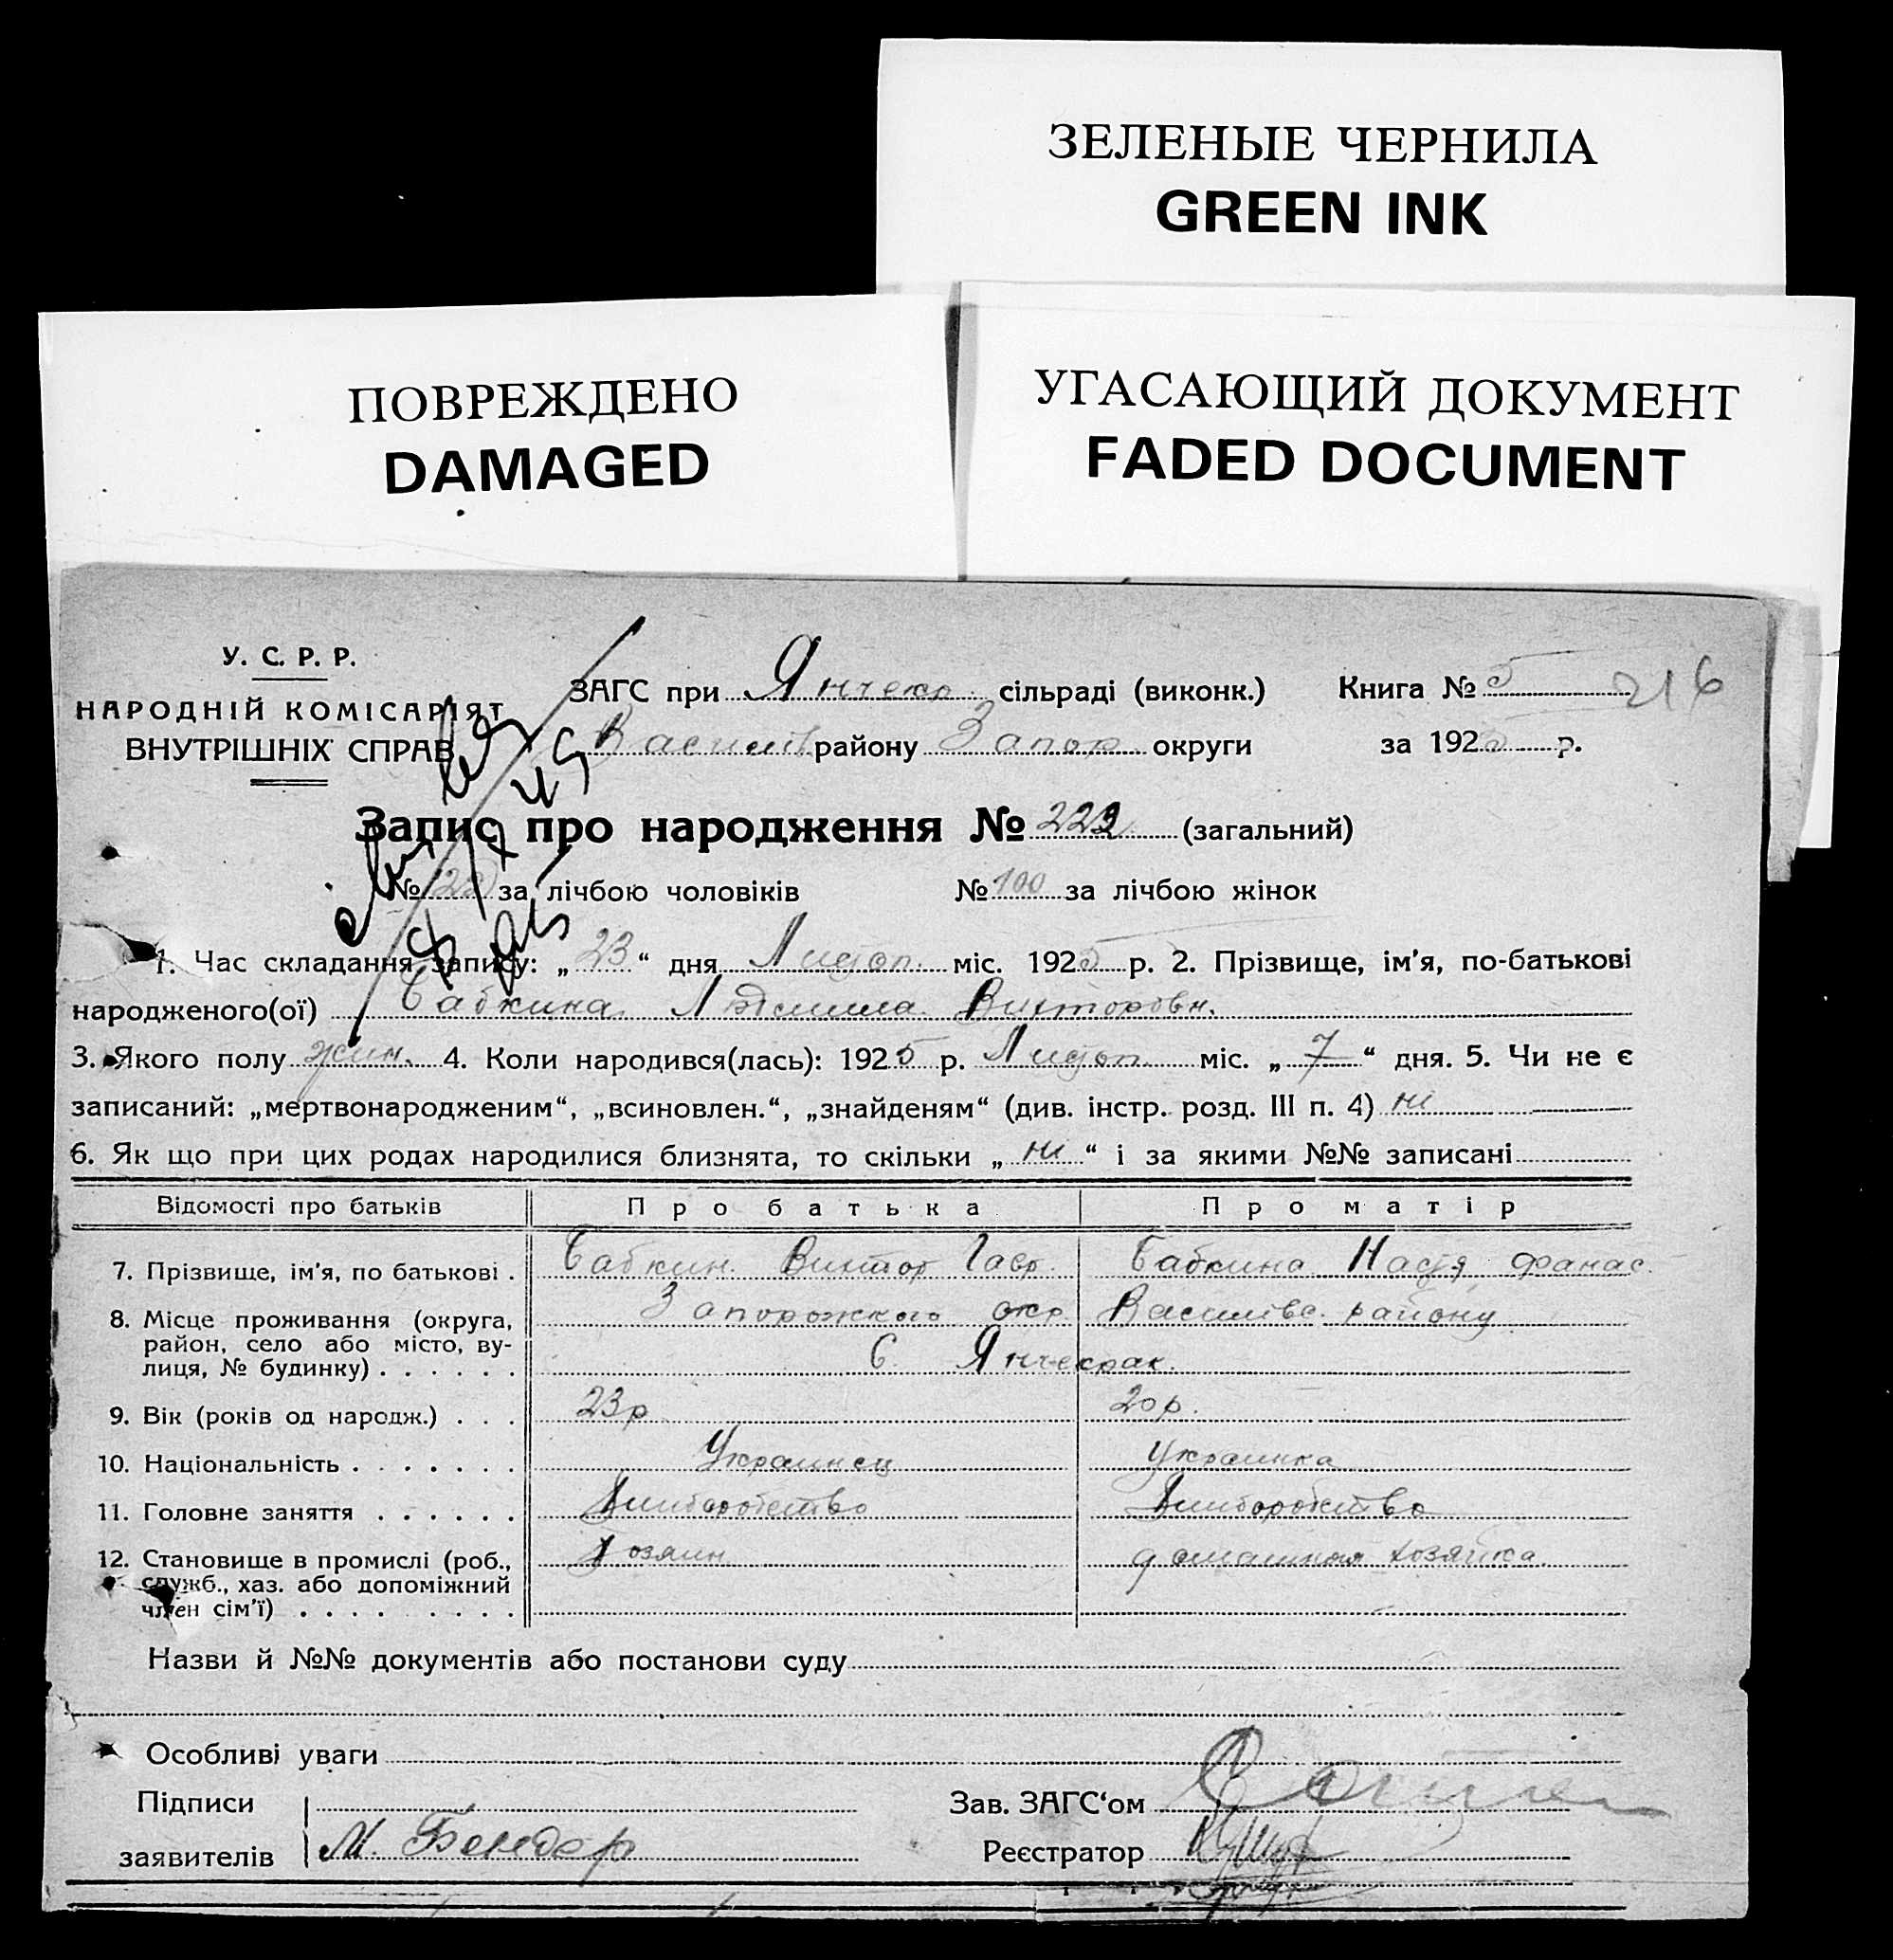 ЗЕЛЕНЫЕ ЧЕРНИЛА
GREEN INK
ПОВРЕЖДЕНО
DAMAGED
УГАСАЮЩИЙ ДОКУМЕНТ
FADED DOCUMENT
У. С. Р. Р.
НАРОДНІЙ КОМІСАРІЯТ
ВНУТРІШНІХ СПРАВ
ЗАГС при Янчекр. сільраді (виконк.) Книга № 5 216
Василів району Запор округи за 1925 р.
Запис про народження № 222 (загальний)
№ 122 за лічбою чоловіків № 100 за лічбою жінок
1. Час складання запису: „23“ дня Листоп. міс. 1925 р. 2. Прізвище, ім'я, по-батькові
народженого(ої) Бабкина Людмила Викторовн.
3. Якого полу жин. 4. Коли народився(лась): 1925 р. Листоп. міс. „7“ дня. 5. Чи не є
записаний: „мертвонародженим“, „всиновлен.“, „знайденям“ (див. інстр. розд. III п. 4) ні
6. Як що при цих родах народилися близнята, то скільки „ні“ і за якими №№ записані
Відомості про батьків Про батька Про матір
7. Прізвище, ім'я, по батькові . Бабкин Виктор Гавр. Бабкина Настя Фанас.
8. Місце проживання (округа, Запорожского окр. Василівс. району
район, село або місто, ву-
лиця, № будинку) . . . . . . С. Янчекрак.
9. Вік (років од народж.) . . . 23р 20р.
10. Національність . . . . . . . Украинец Украинка
11. Головне заняття . . . . . . Хлиборобство Хлиборобство
12. Становище в промислі (роб., Хозяин домашная хозяйка.
служб., хаз. або допоміжний
член сім'ї) . . . . . . . . .
Назви й №№ документів або постанови суду
Особливі уваги
Підписи Зав. ЗАГС'ом
заявителів М. Бендер Реєстратор